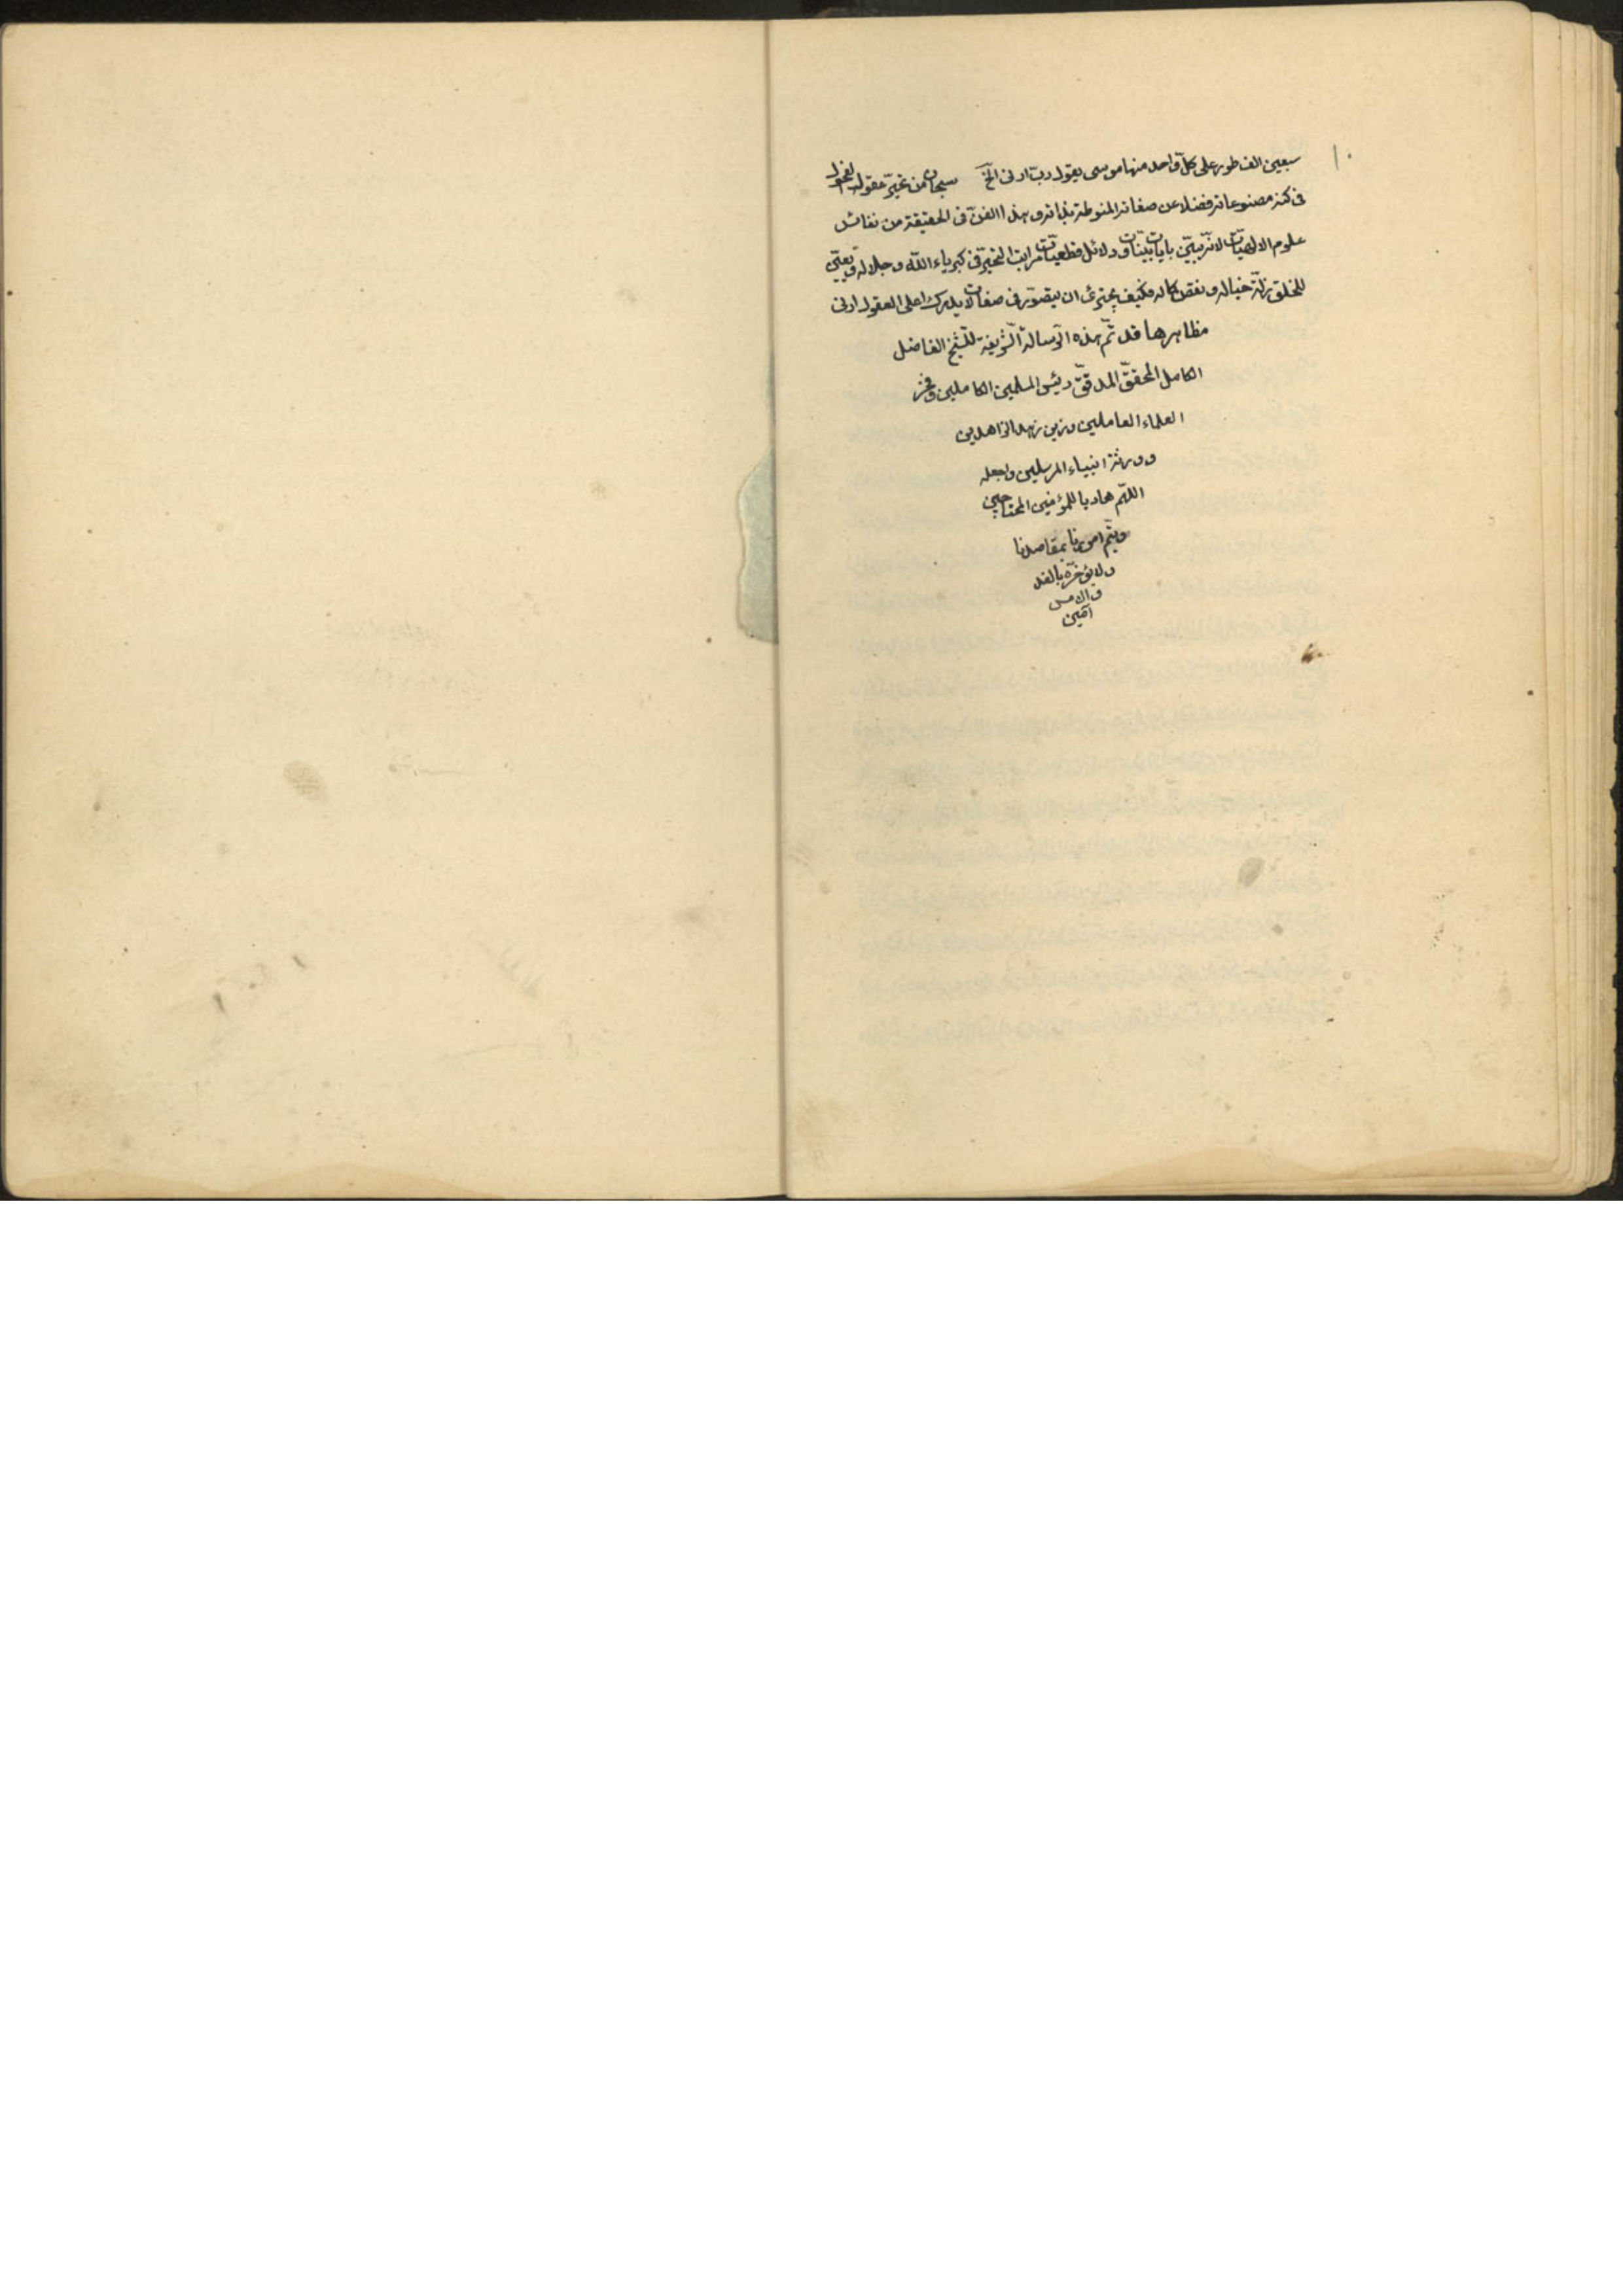 ١٠
سبعين الف طور على كل واحد منها موسى يقول رب ارنى الخ سبحان من تحير عقول الفحول
فى كنه مصنوعاته فضلا عن صفاته المنوطة بذاته وهذا الفن فى الحقيقة من نفائس
علوم الالهيات لانه يبين بايات بينات ودلائل قطعيات مراتب التحير فى كبرياء الله وجلاله ويعين
للخلق زلة خياله ونقص كماله فكيف يجترئ ان يتصور فى صفات لا يدرك اعلى العقول ادنى
مظاهرها قد تم هذه الرسالة الشريفة للشيخ الفاضل
الكامل المحقق المدقق رئيس المسلمين الكاملين وفخر
العلماء العاملين وزين زهد الزاهدين
وورثة انبياء المرسلين واجعله
اللهم هاديا للمؤمنين المحتاجين
ويتم امورنا بمقاصدنا
ولا يؤخره بالغد
والامس
آمين